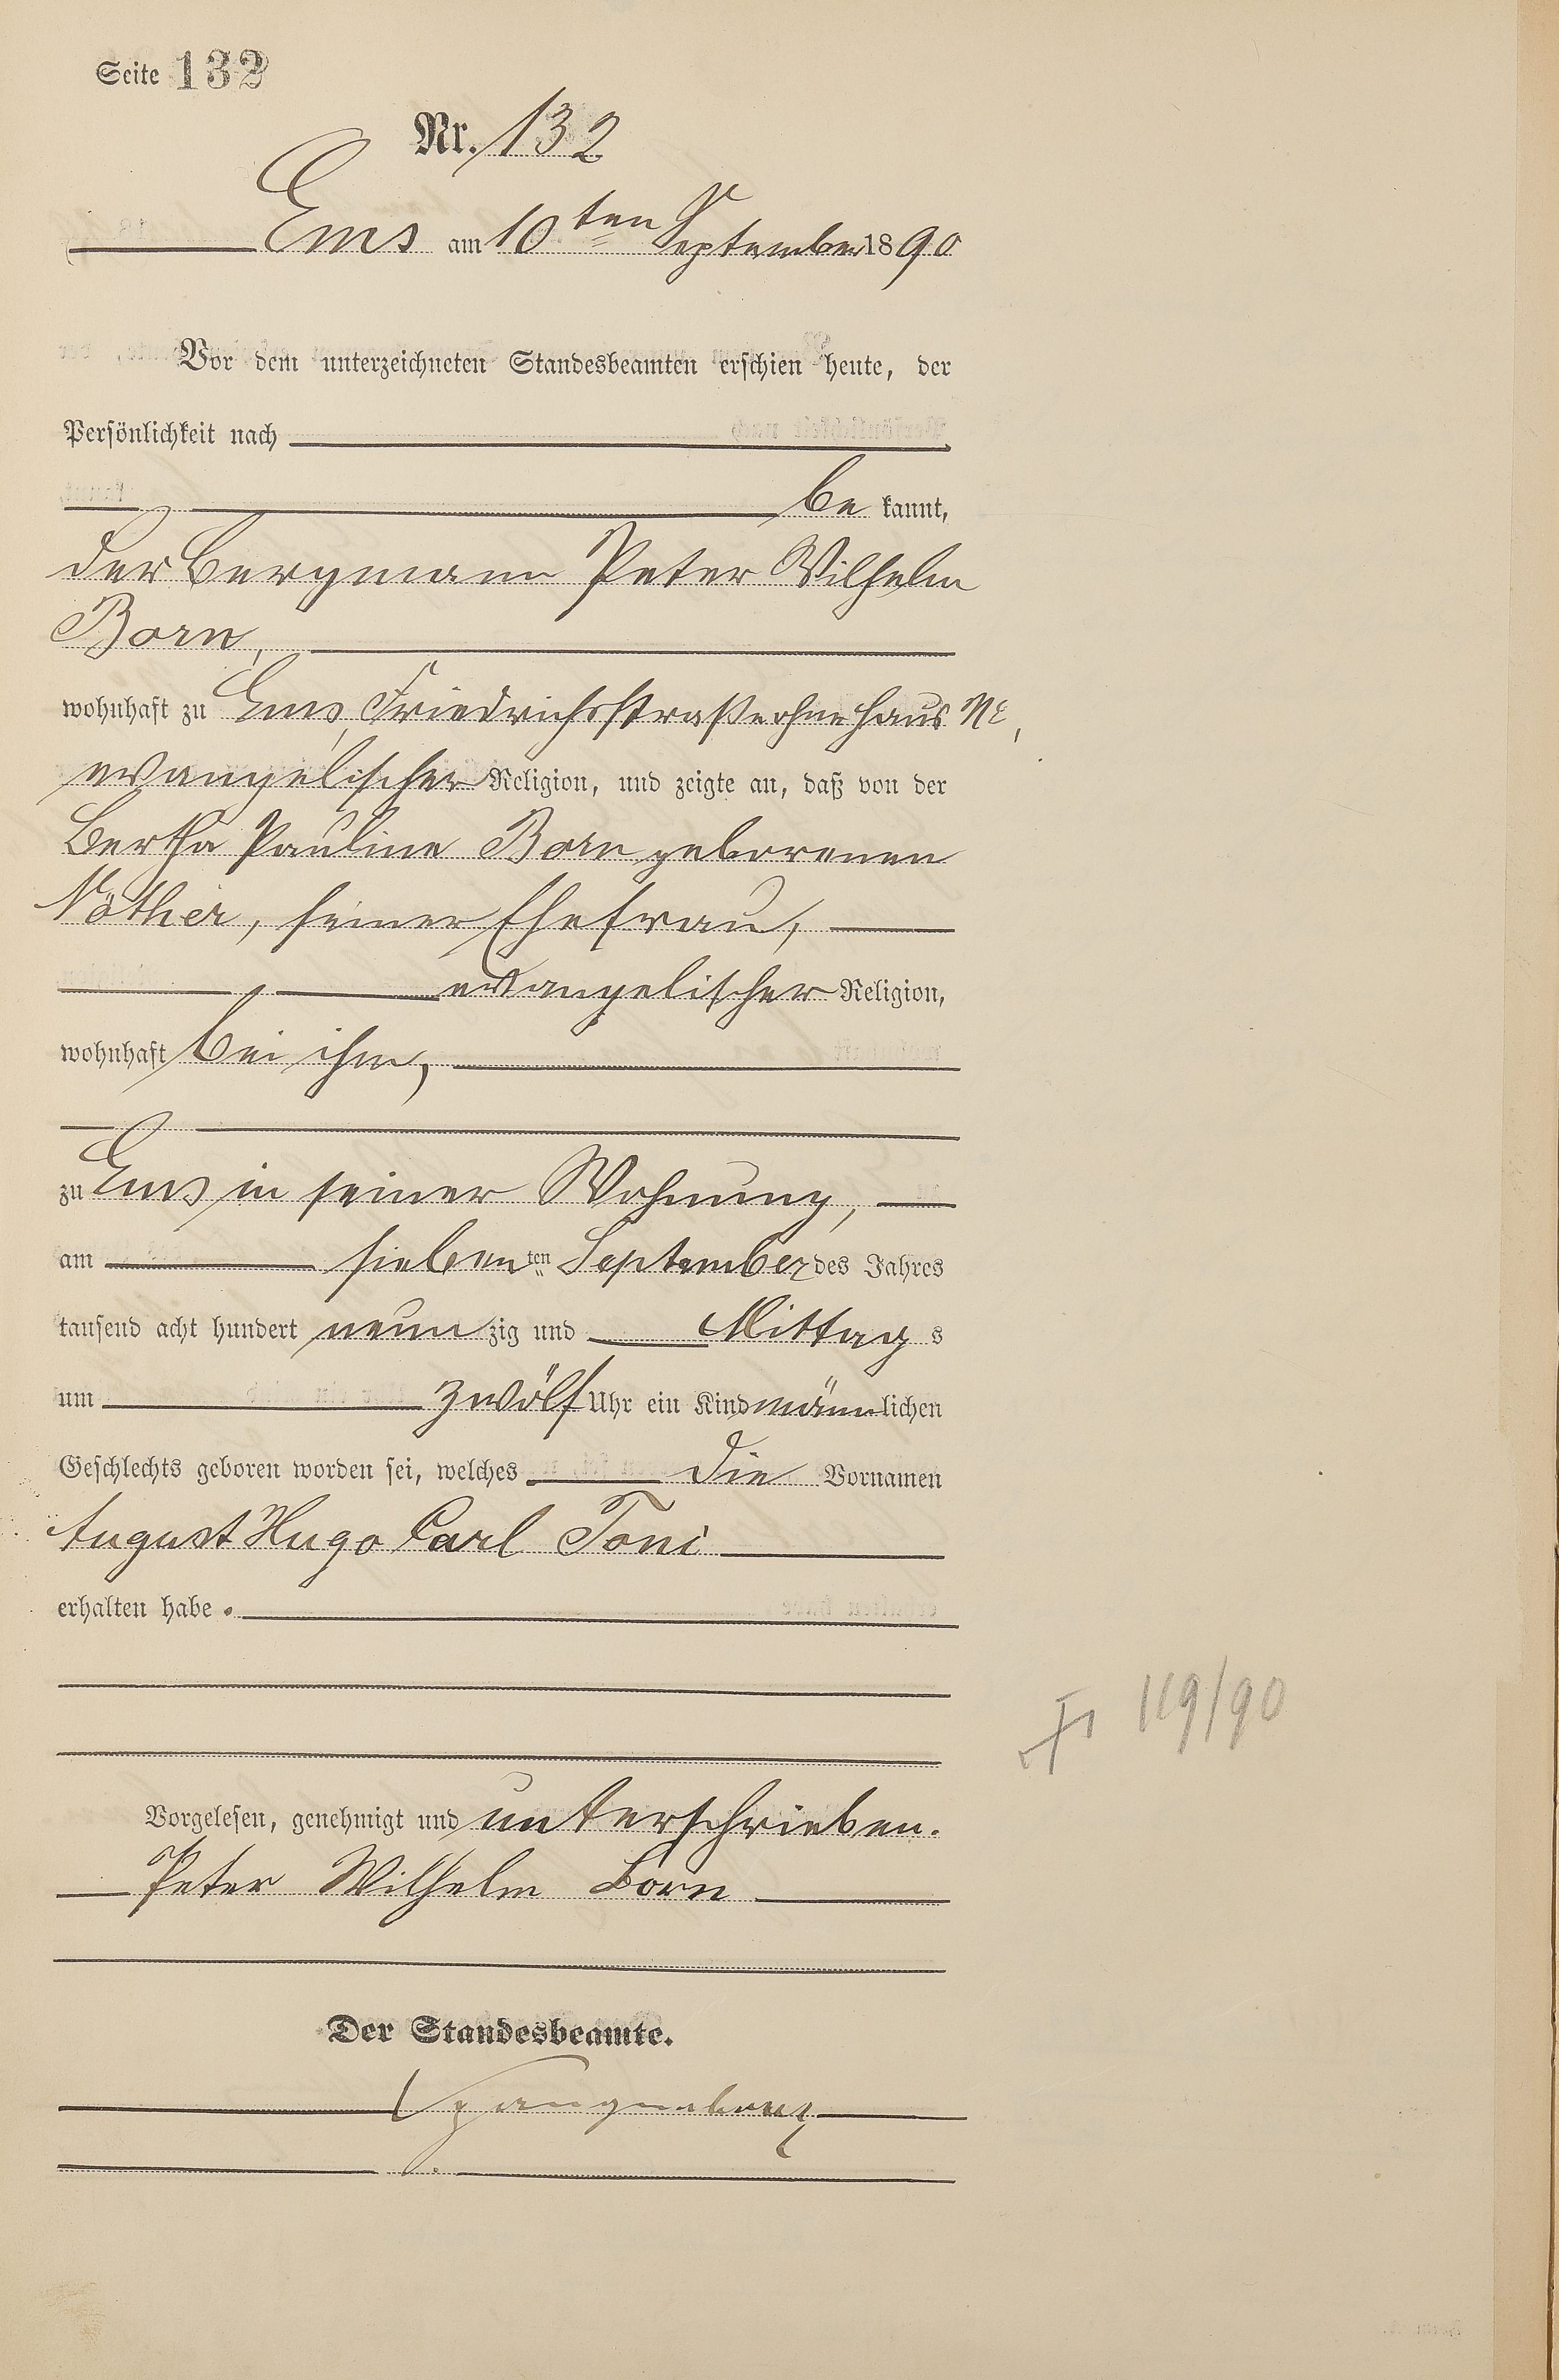 Seite 132
Nr. 132
Ems am 10ten September 1890
Vor dem unterzeichneten Standesbeamten erschien heute, der
Persönlichkeit nach
be kannt,
der Bergmann Peter Wilhelm
Born,
wohnhaft zu Ems, Friedrichsstraße ohne Haus Nr,
evangelischer Religion, und zeigte an, daß von der
Bertha Pauline Born geborenen
Nöther, seiner Ehefrau,
evangelischer Religion,
wohnhaft bei ihm,
zu Ems in seiner Wohnung,
am siebenten September des Jahres
tausend acht hundert neun zig und Mittag s
um zwölf Uhr ein Kind männlichen
Geschlechts geboren worden sei, welches die Vornamen
August Hugo Carl Toni
erhalten habe.
119/90
Vorgelesen, genehmigt und unterschrieben.
Peter Wilhelm Born
Der Standesbeamte.